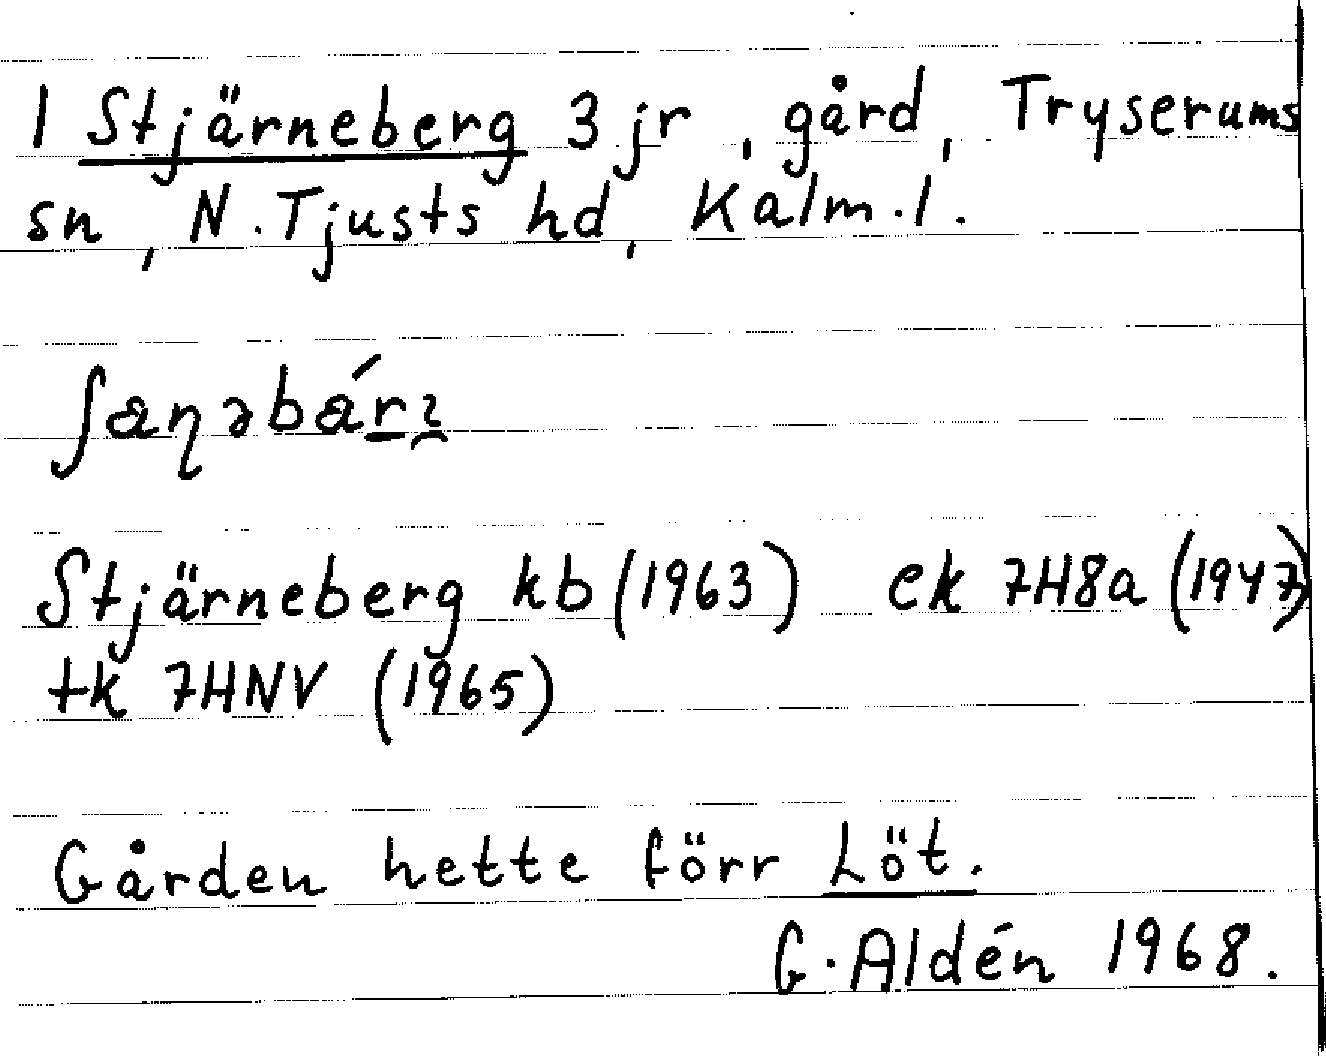 1 Stjärneberg 3 jr, gård, Tryserums
sn, N. Tjusts hd, Kalm. l.
ʃæɳəbár
Stjärneberg kb (1963) ek 7H8a (1947)
tk 7HNV (1965)
Gården hette förr Löt.
G. Aldén 1968.